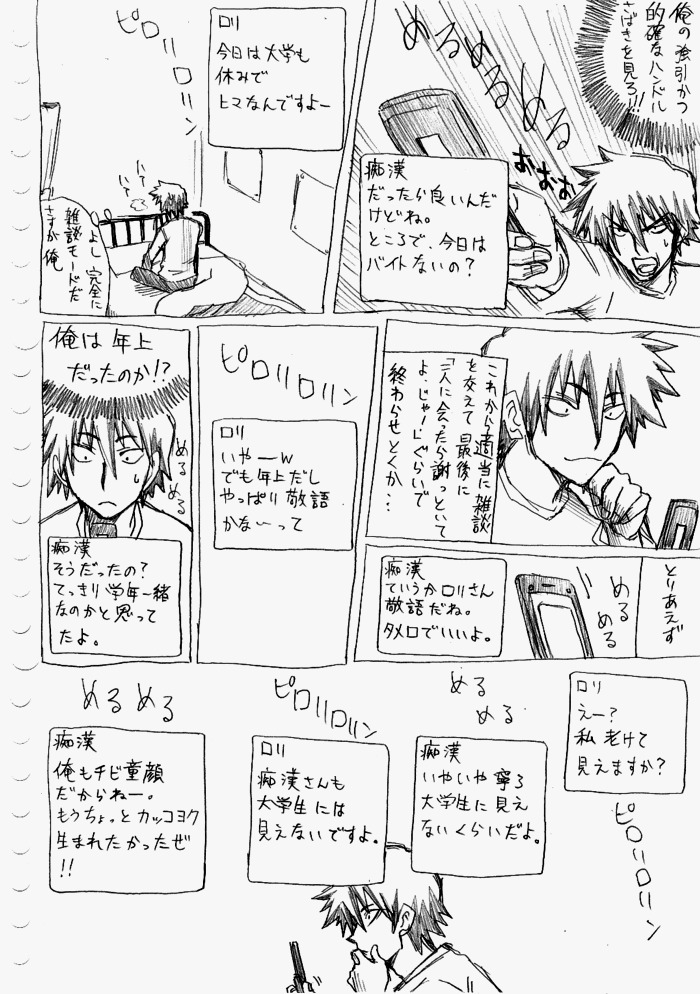 俺の強引かつ
的確なハンドル
さばきを見ろ!!
めるめるめる
おおお
痴漢
だったら良いんだ
けどね。
ところで、今日は
バイトないの?
ロリ
今日は大学も
休みで
ヒマなんですよー
ピロリロリン
いて
いて
よし 完全に
雑談モードだ
さすが俺
これから適当に雑談
を交えて最後に
「二人に会ったら謝っといて
よ、じゃ!」ぐらいで
終わらせとくか…
とりあえず
めるめる
痴漢
ていうかロリさん
敬語だね。
タメ口でいいよ。
ピロリロリン
ロリ
いやーw
でも年上だし
やっぱり敬語
かな〜って
俺は年上
だったのか!?
めるめる
痴漢
そうだったの?
てっきり学年一緒
なのかと思って
たよ。
ロリ
えー?
私老けて
見えますか?
ピロリロリン
める
める
痴漢
いやいや寧ろ
大学生に見え
ないくらいだよ。
ピロリロリン
ロリ
痴漢さんも
大学生には
見えないですよ。
めるめる
痴漢
俺もチビ童顔
だからねー。
もうちょっとカッコヨク
生まれたかったぜ
!!